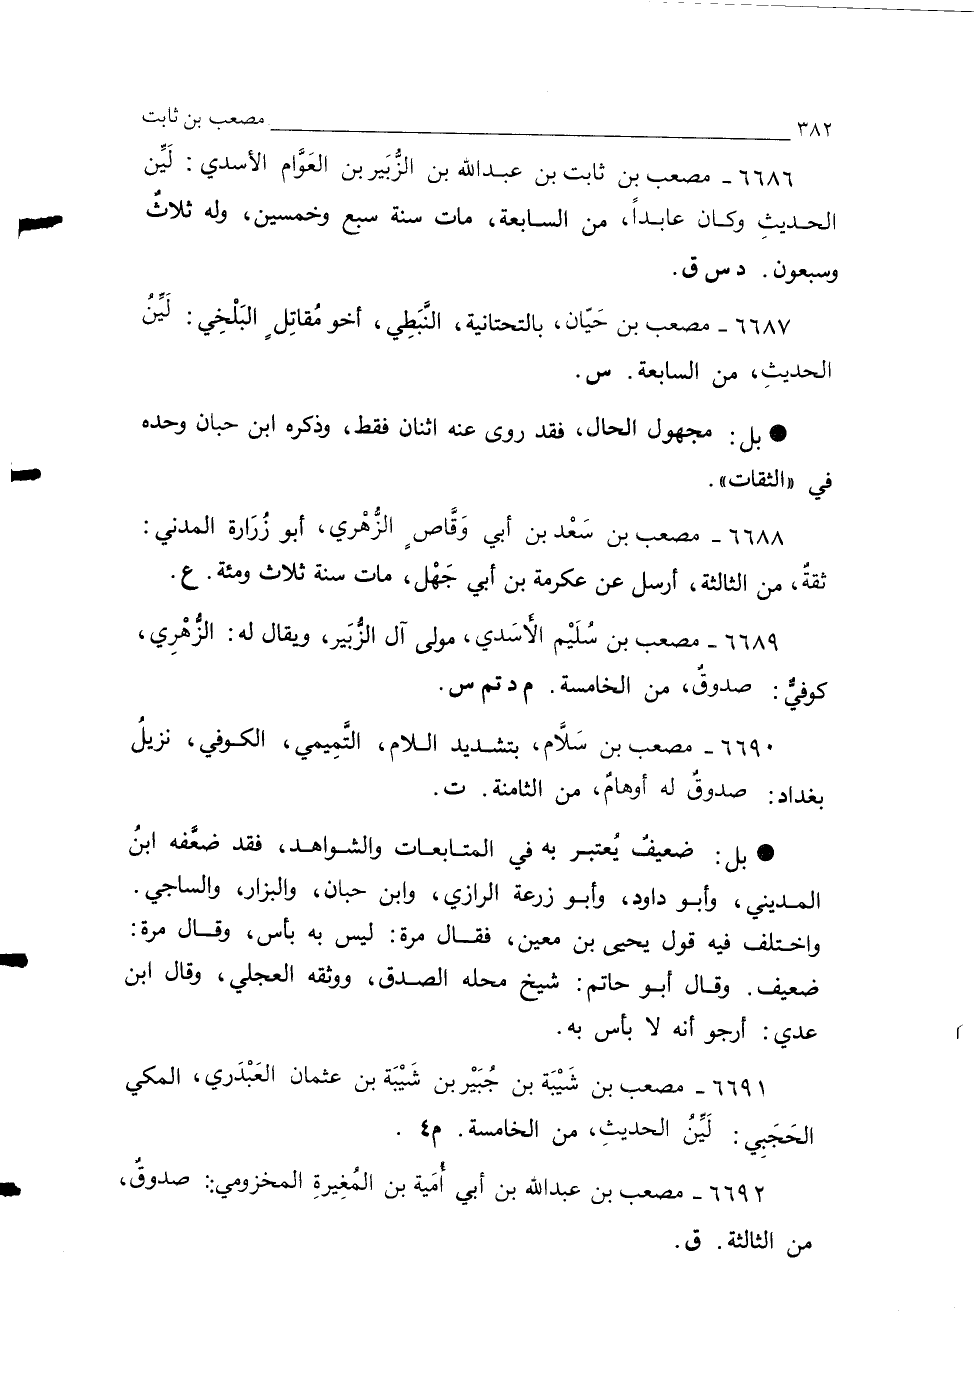 ٣٨٢ مصعب بن ثابت
٦٦٨٦ ـ مصعب بن ثابت بن عبدالله بن الزُّبَير بن العَوَّام الأسدي: لَيِّن
الحديثِ وكان عابداً، من السابعة، مات سنة سبع وخمسين، وله ثلاثٌ
وسبعون. د س ق.
٦٦٨٧ ـ مصعب بن حَيّان، بالتحتانية، النَّبَطِي، أخو مُقاتِلٍ البَلْخِي: لَيِّنُ
الحديثِ، من السابعة. س.
● بل: مجهول الحال، فقد روى عنه اثنان فقط، وذكره ابن حبان وحده
في «الثقات».
٦٦٨٨ ـ مصعب بن سَعْد بن أبي وَقَّاصٍ الزُّهْري، أبو زُرَارة المدني:
ثقةٌ، من الثالثة، أرسل عن عكرمة بن أبي جَهْل، مات سنة ثلاث ومئة. ع.
٦٦٨٩ ـ مصعب بن سُلَيْم الأَسَدي، مولى آل الزُّبَير، ويقال له: الزُّهْرِي،
كوفيٌّ: صدوقٌ، من الخامسة. م د تم س.
٦٦٩٠ ـ مصعب بن سَلَّام، بتشديد اللام، التَّمِيمي، الكوفي، نزيلُ
بغداد: صدوقٌ له أوهامٌ، من الثامنة. ت.
● بل: ضعيفٌ يُعتبر به في المتابعات والشواهد، فقد ضعَّفه ابنُ
المديني، وأبو داود، وأبو زرعة الرازي، وابن حبان، والبزار، والساجي.
واختلف فيه قول يحيى بن معين، فقال مرة: ليس به بأس، وقال مرة:
ضعيف. وقال أبو حاتم: شيخ محله الصدق، ووثقه العجلي، وقال ابن
عدي: أرجو أنه لا بأس به.
٦٦٩١ ـ مصعب بن شَيْبَة بن جُبَيْر بن شَيْبَة بن عثمان العَبْدَري، المكي
الحَجَبِي: لَيِّنُ الحديثِ، من الخامسة. م٤ .
٦٦٩٢ ـ مصعب بن عبدالله بن أبي أُمَية بن المُغِيرةِ المخزومي: صدوقٌ،
من الثالثة. ق.